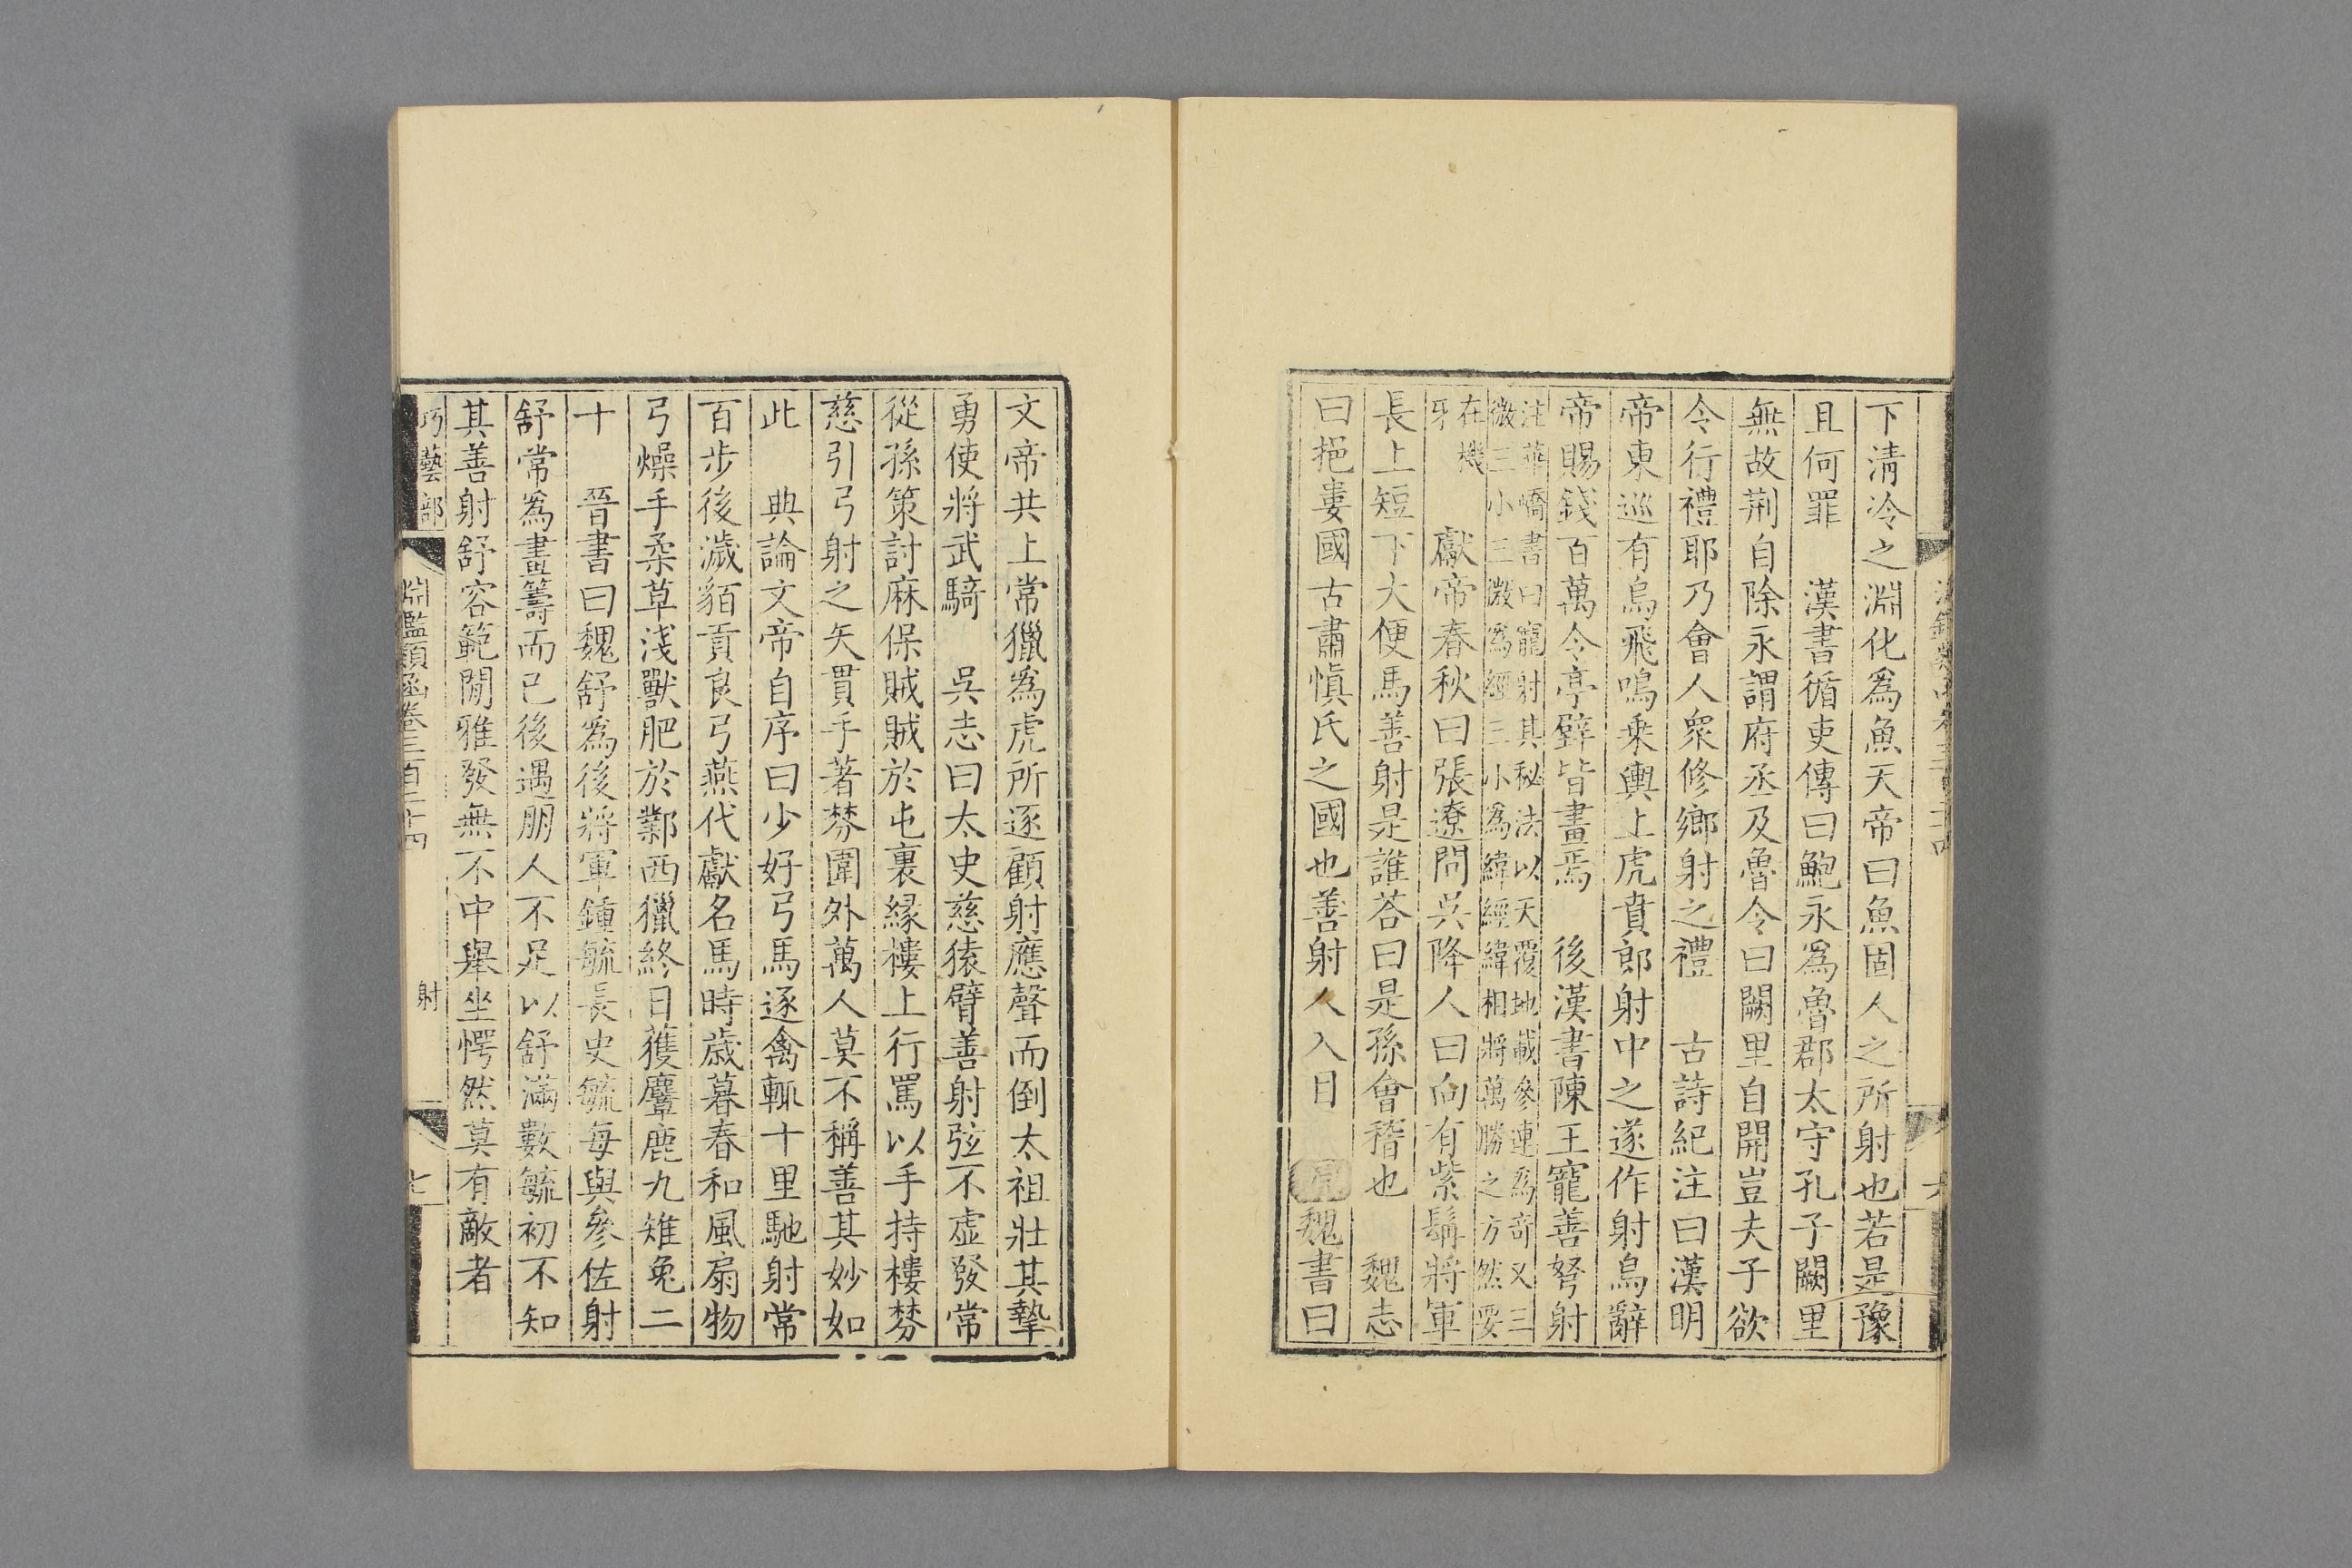 下清冷之淵化爲魚天帝曰魚固人之所射也若是豫
且何罪　漢書循吏傳曰鮑永爲魯郡太守孔子闕里
無故荆自除永謂府丞及魯令曰闕里自開豈夫子欲
令行禮耶乃會人衆修鄉射之禮　古詩紀注曰漢明
帝東巡有烏飛鳴乘輿上虎賁郎射中之遂作射烏辭
帝賜錢百萬令亭壁皆畫焉　後漢書陳王寵善弩射
注華嶠書曰寵射其秘法以天覆地載參連爲奇又三
微三小三微爲經三小爲緯經緯相將萬勝之方然要
在機
牙
獻帝春秋曰張遼問吳降人曰向有紫髯將軍
長上短下大便馬善射是誰荅曰是孫會稽也　魏志
曰挹婁國古肅愼氏之國也善射人入目
魏書曰
文帝共上常獵爲虎所逐顧射應聲而倒太祖壯其摯
勇使將武騎　吳志曰太史慈猿臂善射弦不虛發常
從孫策討麻保賊賊於屯裏緣樓上行罵以手持樓棼
慈引弓射之矢貫手著棼圍外萬人莫不稱善其妙如
此　典論文帝自序曰少好弓馬逐禽輒十里馳射常
百步後濊貊貢良弓燕代獻名馬時歲暮春和風扇物
弓燥手柔草淺獸肥於鄴西獵終日獲麞鹿九雉兔二
十　晉書曰魏舒爲後將軍鍾毓長史毓每與參佐射
舒常爲畫籌而已後遇朋人不足以舒滿數毓初不知
其善射舒容範閒雅發無不中舉坐愕然莫有敵者
巧藝部
淵鑑類函卷三百二十四
射
七